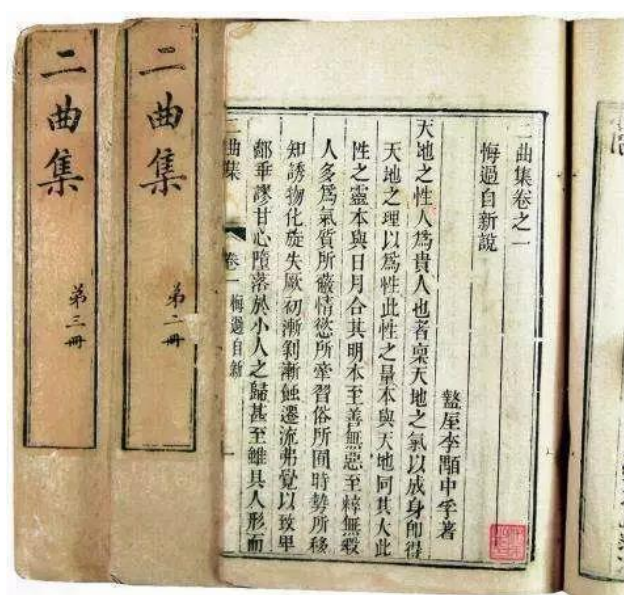 二曲集卷之一
悔過自新說
盩厔李顒中孚著
天地之性人爲貴人也者稟天地之氣以成身即得
天地之理以爲性此性之量本與天地同其大此
性之靈本與日月合其明本至善無惡至粹無瑕
人多爲氣質所蔽情慾所牽習俗所囿時勢所移
知誘物化旋失厥初漸剝漸蝕遷流弗覺以致卑
鄙乖謬甘心墮落於小人之歸甚至雖具人形而
二曲集
卷一悔過自新
一
二曲集
第二冊
二曲集
第三冊